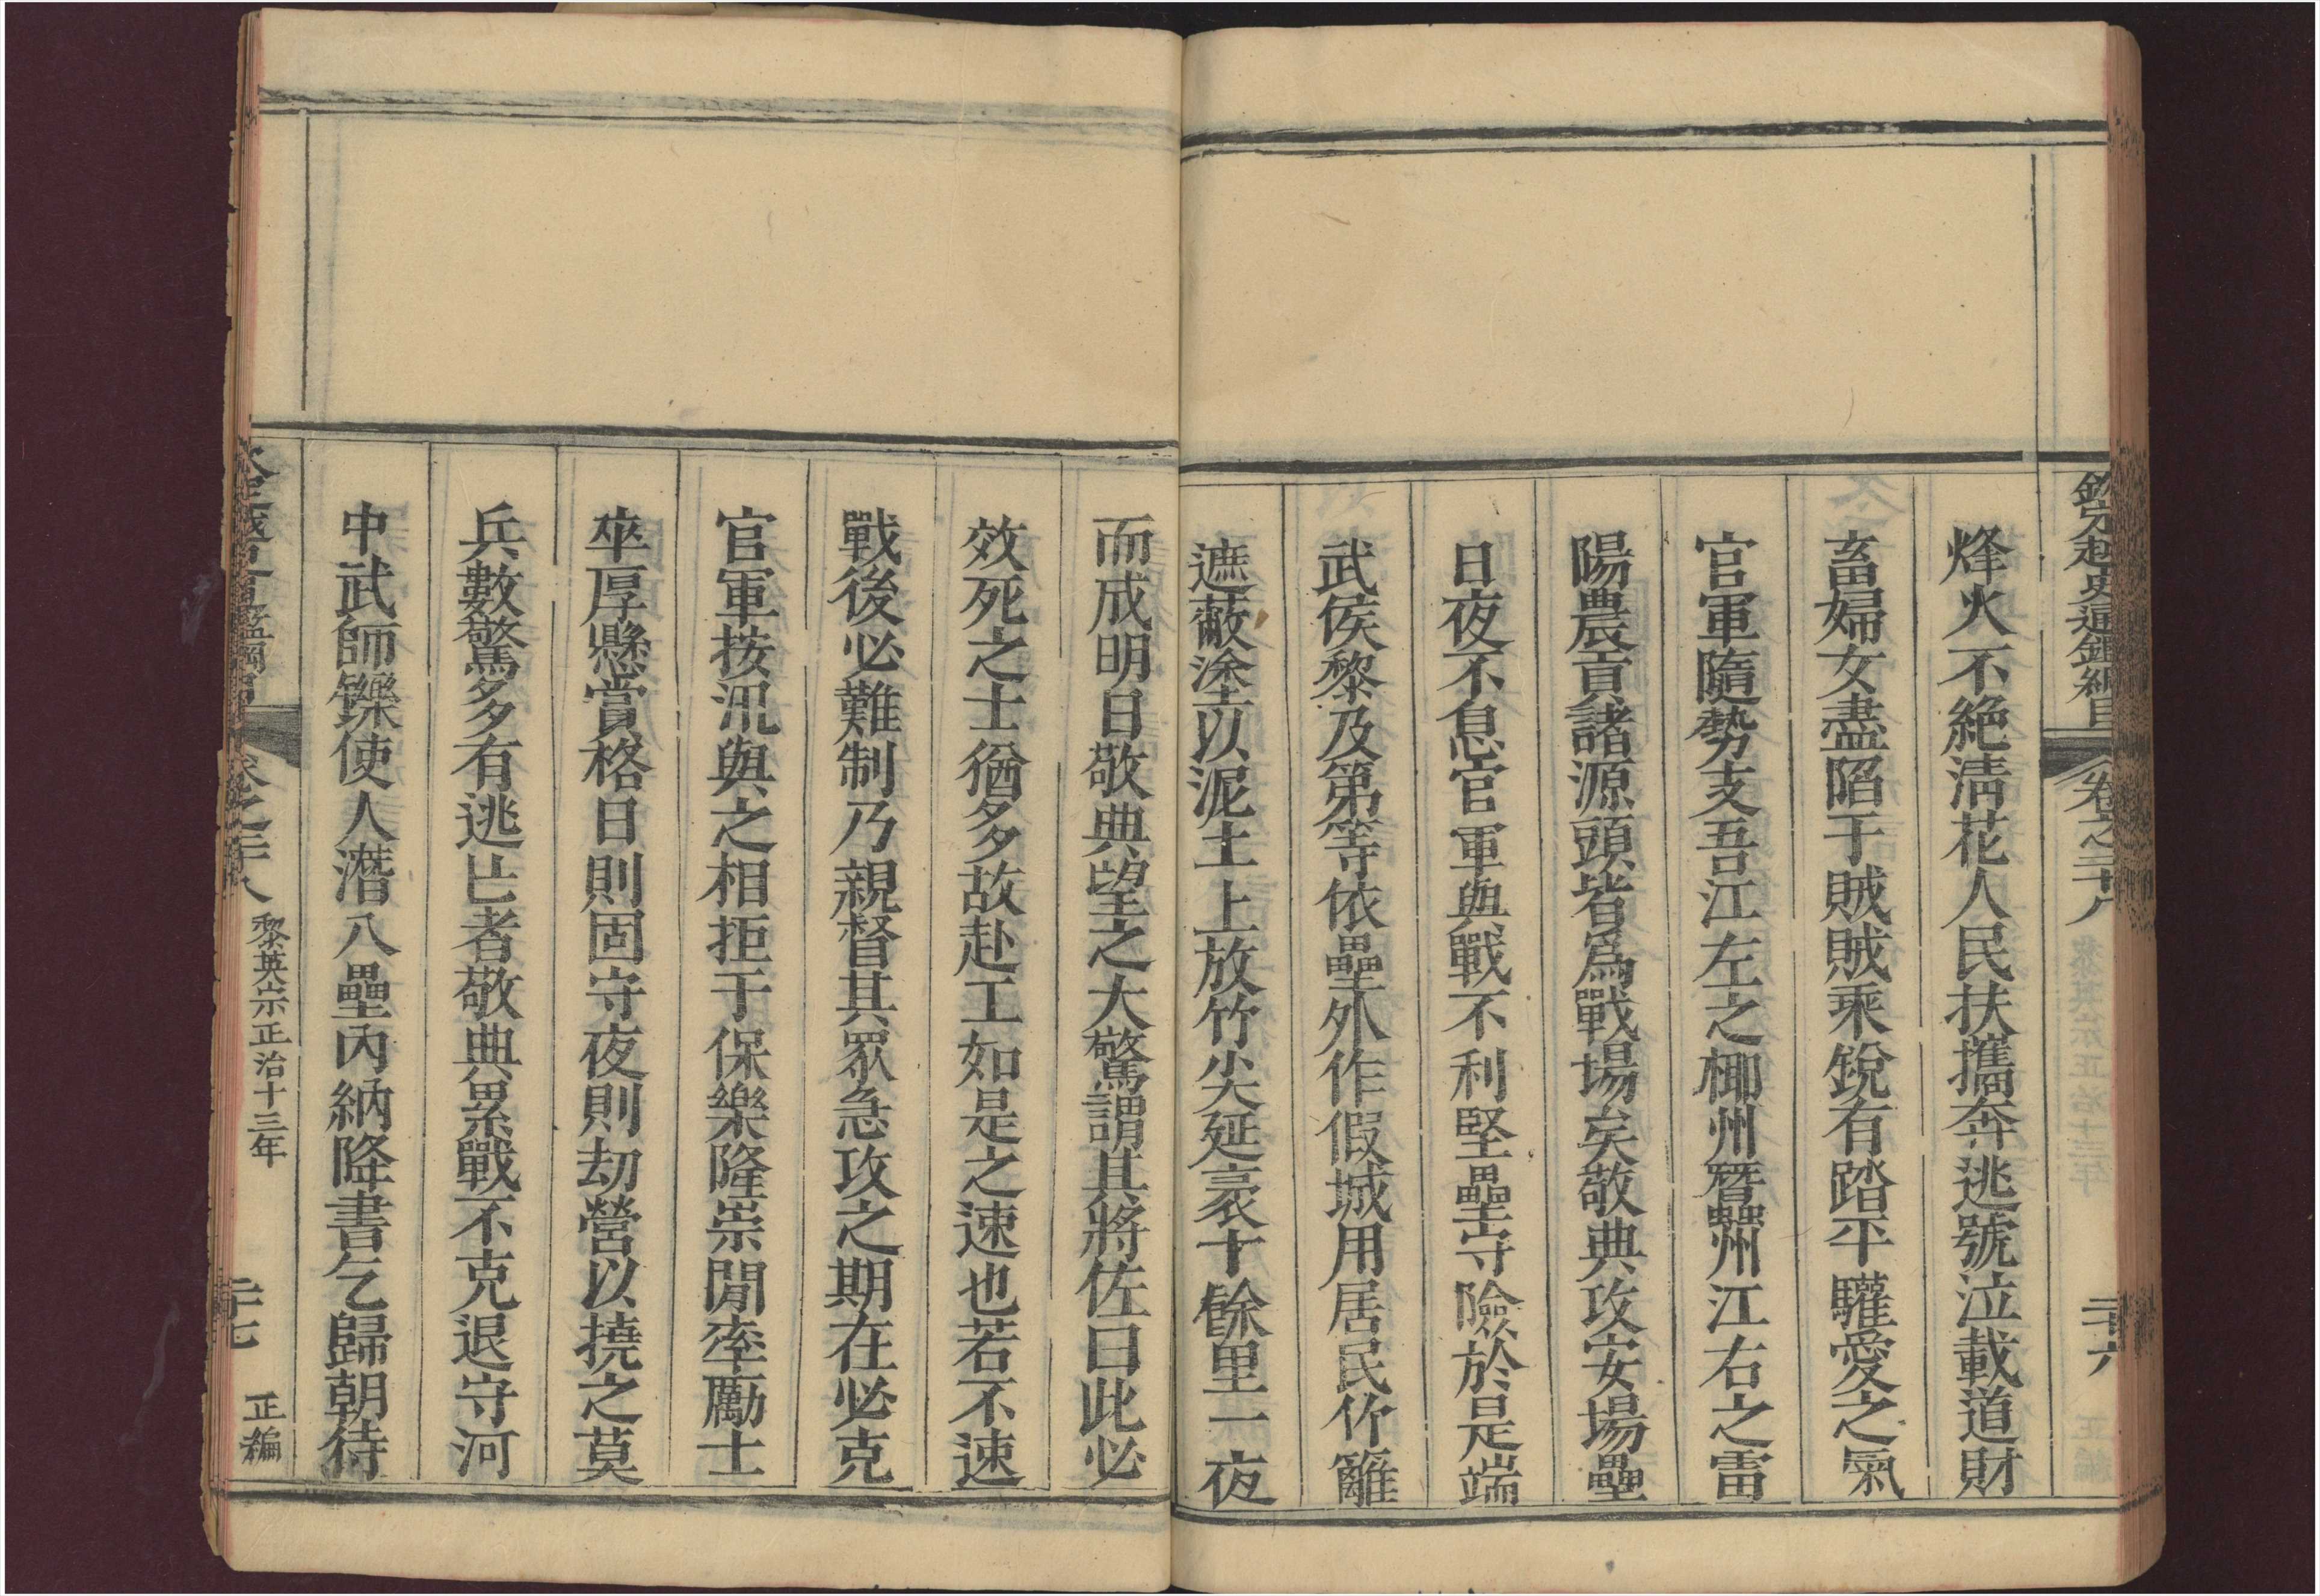 欽定越史通鑑綱目 卷之二十八 二十六
烽火不絶淸花人民扶攜奔逃號泣載道財
畜婦女盡陷于賊賊乘銳有踏平驩愛之氣
官軍隨勢支吾江左之椰州暨州江右之雷
陽農貢諸源頭皆爲戰場矣敬典攻安場壘
日夜不息官軍與戰不利堅壘守險於是端
武侯黎及第等依壘外作假城用居民竹籬
遮蔽塗以泥土上放竹尖延袤十餘里一夜
而成明日敬典望之大驚謂其將佐曰此必
效死之士猶多故赴工如是之速也若不速
戰後必難制乃親督其眾急攻之期在必克
官軍按汛與之相拒于保樂隆崇閒率勵士
卒厚懸賞格日則固守夜則劫營以撓之莫
兵數驚多有逃亡者敬典累戰不克退守河
中武師鑠使人潛入壘內納降書乞歸朝待
卷之二十八 黎英宗正治十三年 二十七 正編